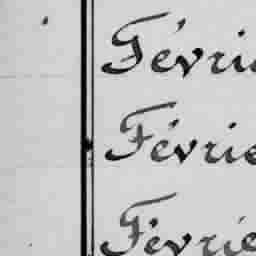 Févrie
Févrie
Févrie